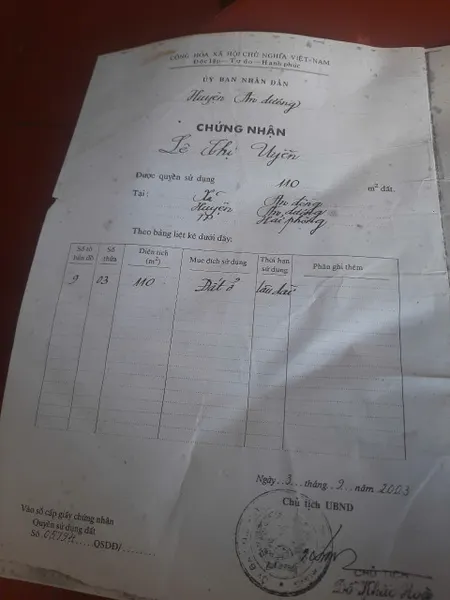 CỘNG HÒA XÃ HỘI CHỦ NGHĨA VIỆT-NAM
Độc lập - Tự do - Hạnh phúc
ỦY BAN NHÂN DÂN
Huyện An dương
CHỨNG NHẬN
Lê Thị Uyên
Được quyền sử dụng 110 m² đất.
Tại: Xã An đồng
Huyện An dương
TP Hải phòng
Theo bảng liệt kê dưới đây:
Số tờ bản đồ Số thửa Diện tích (m²) Mục đích sử dụng Thời hạn sử dụng Phần ghi thêm
9 03 110 Đất ở lâu dài
Ngày 3 tháng 9 năm 2003
Chủ tịch UBND
Vào sổ cấp giấy chứng nhận
Quyền sử dụng đất
Số QSDĐ/
CHỦ TỊCH